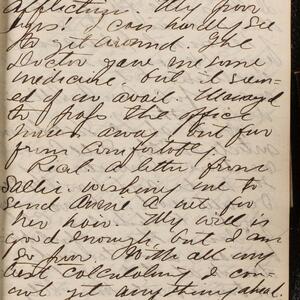 affliction. My poor
eyes! I can hardly see
to get around. The
Doctor gave me some
medicine but it seem-
ed of no avail. Managed
to pass the office
hours away but far
from comfortably.
Recd. a letter from
Sallie wishing me to
send Annie a net for
her hair. My will is
good enough, but I am
so poor. With all my
best calculating I can-
not get any thing ahead.